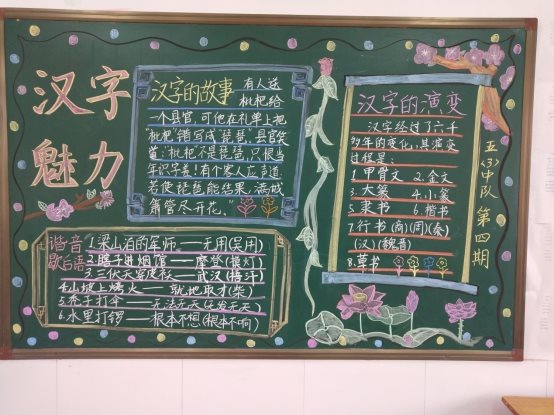 汉字
魅力
汉字的故事 有人送
枇杷给
一个县官，可他在礼单上把
"枇杷"错写成"琵琶"。县官笑
道："枇杷不是琵琶，只恨当
年识字差！有个客人应声道：
若使琵琶能结果，满城
箫管尽开花。"
谐音
歇后语
1.梁山泊的军师——无用(吴用)
2.瞎子进烟馆——摩登(摸灯)
3.三伏天穿皮袄——武汉(捂汗)
4.山坡上烤火——就地取才(柴)
5.秃子打伞——无法无天
6.水里打锣——根本不想(根本不响)
汉字的演变
汉字经过了六千
多年的变化，其演变
过程是：
1.甲骨文 2.金文
3.大篆 4.小篆
5.隶书 6.楷书
7.行书(商)(周)(秦)
(汉)(魏晋)
8.草书
五(3)中队 第四期